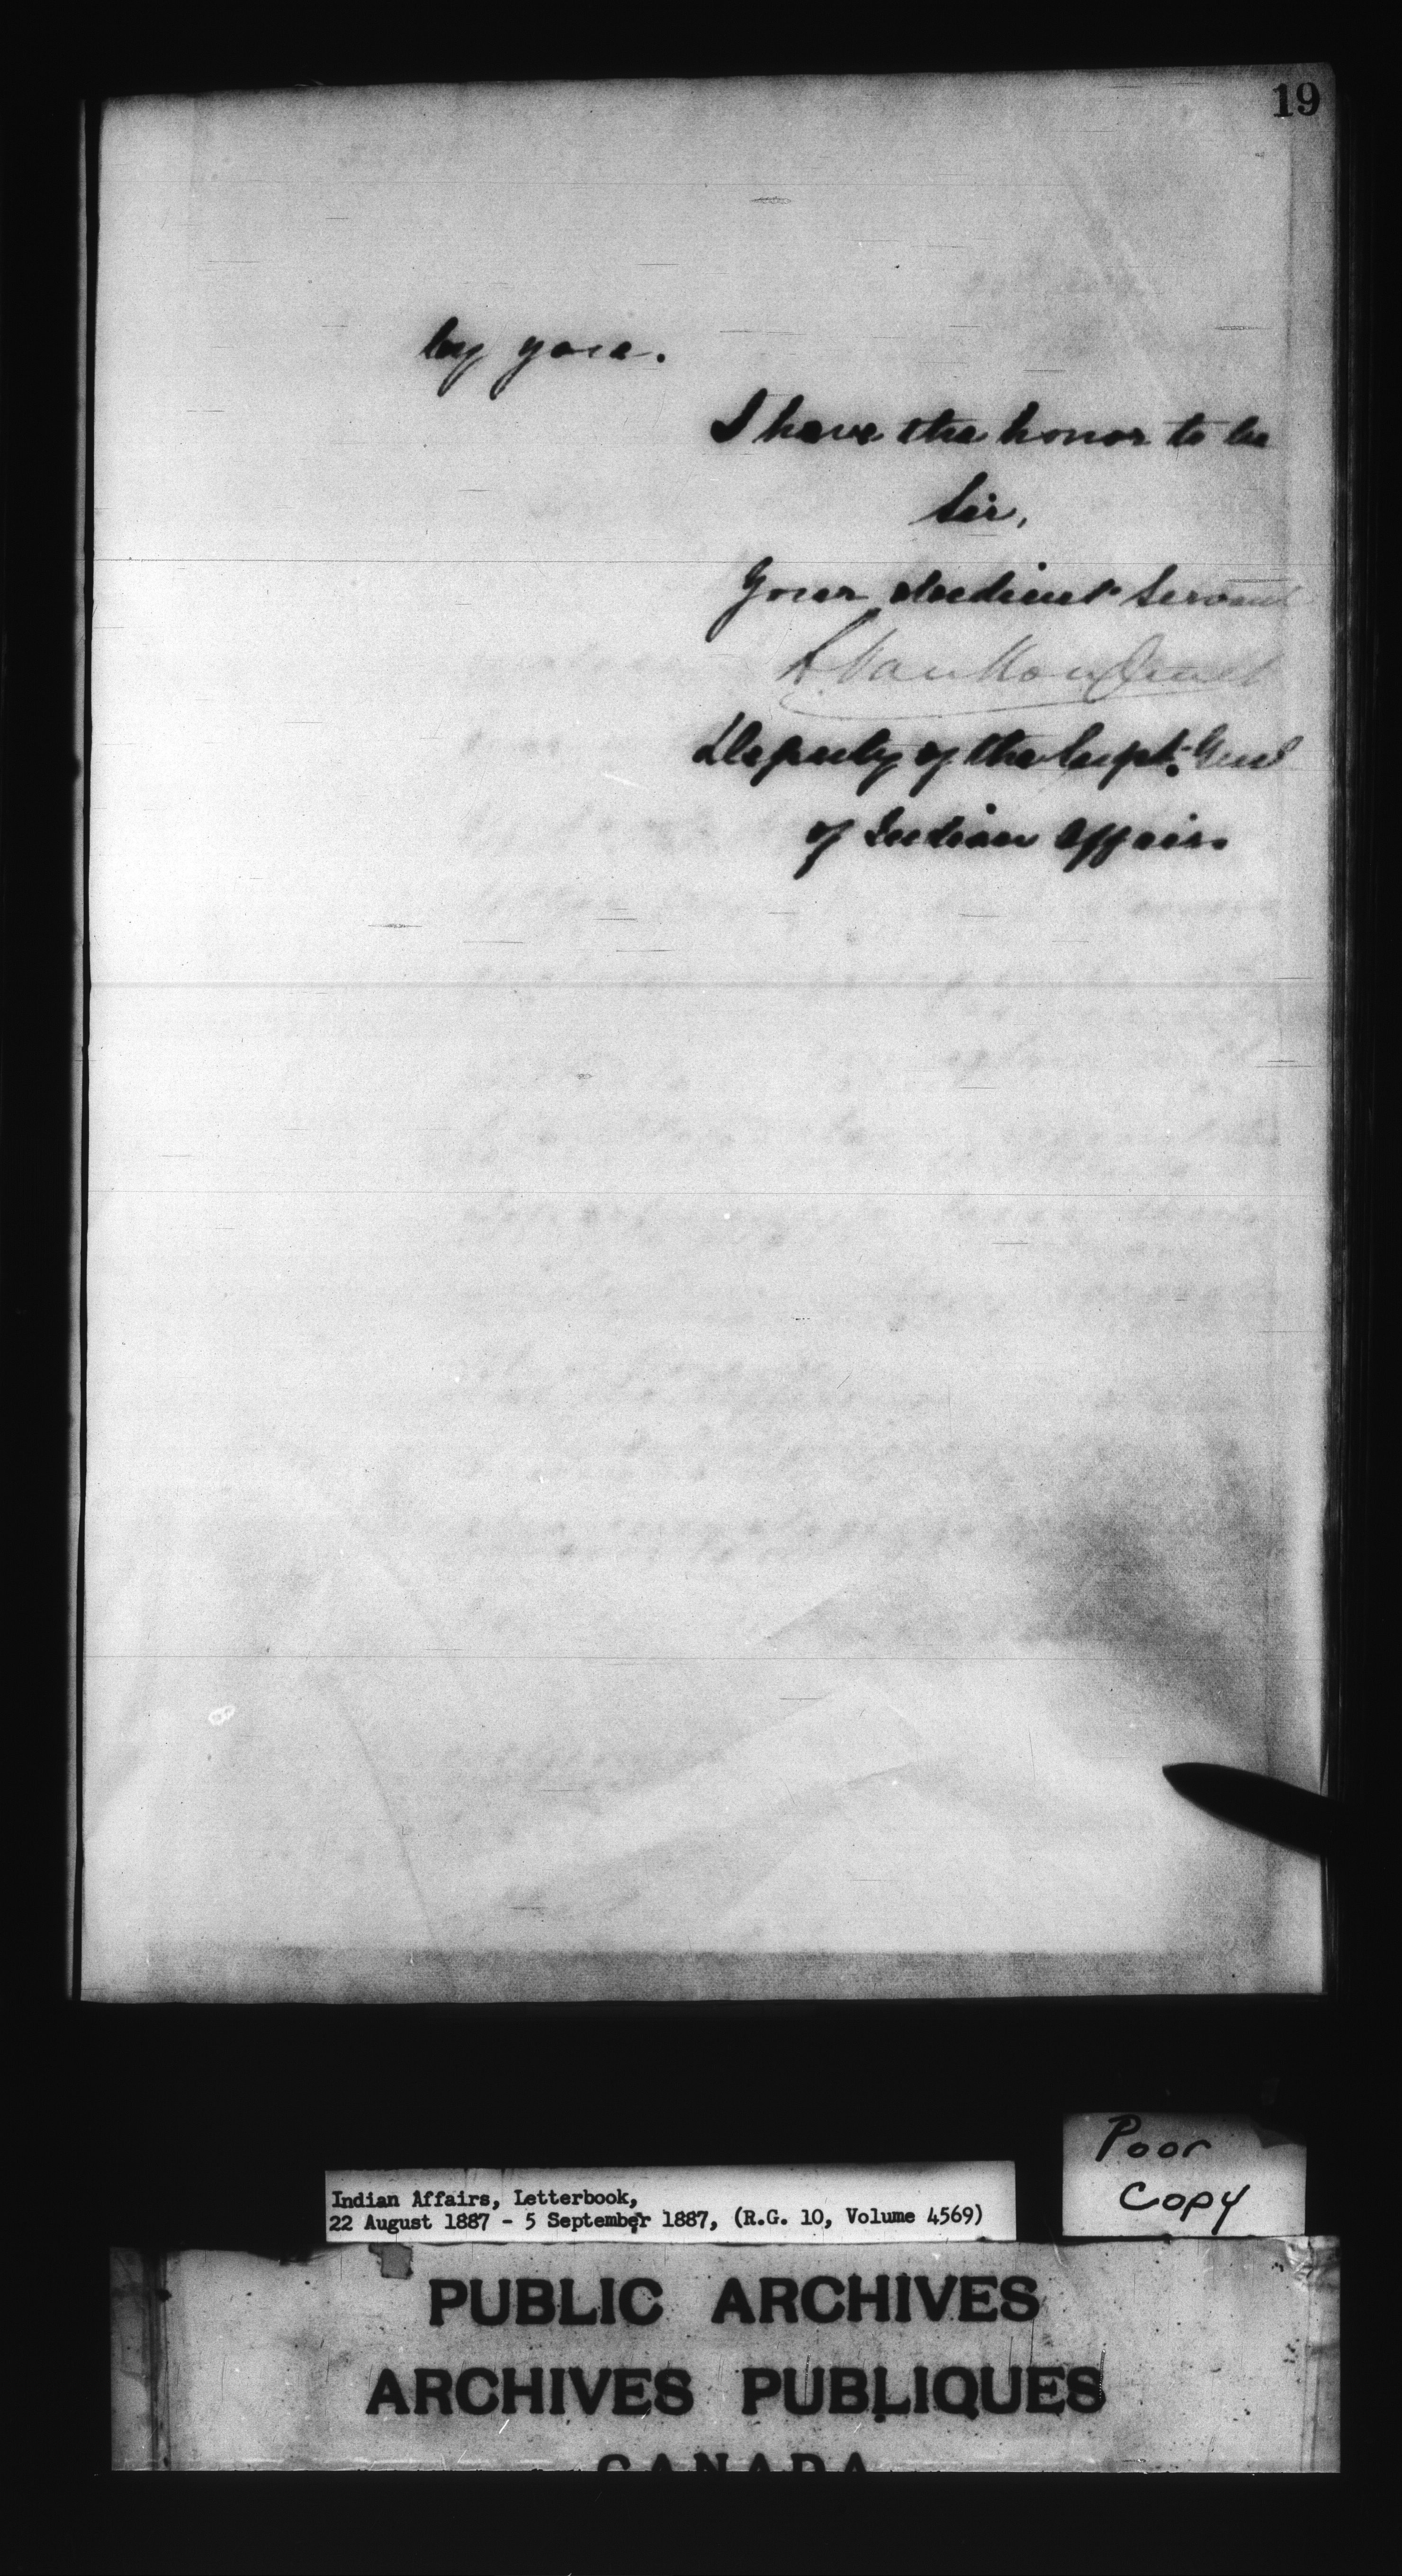 19
by you.
I have the honor to be
Sir,
Your obedient Servant
L. VanKoughnet
Deputy of the Supt. Genl
of Indian Affairs
Poor
Copy
Indian Affairs, Letterbook,
22 August 1887 - 5 September 1887, (R.G. 10, Volume 4569)
PUBLIC ARCHIVES
ARCHIVES PUBLIQUES
CANADA